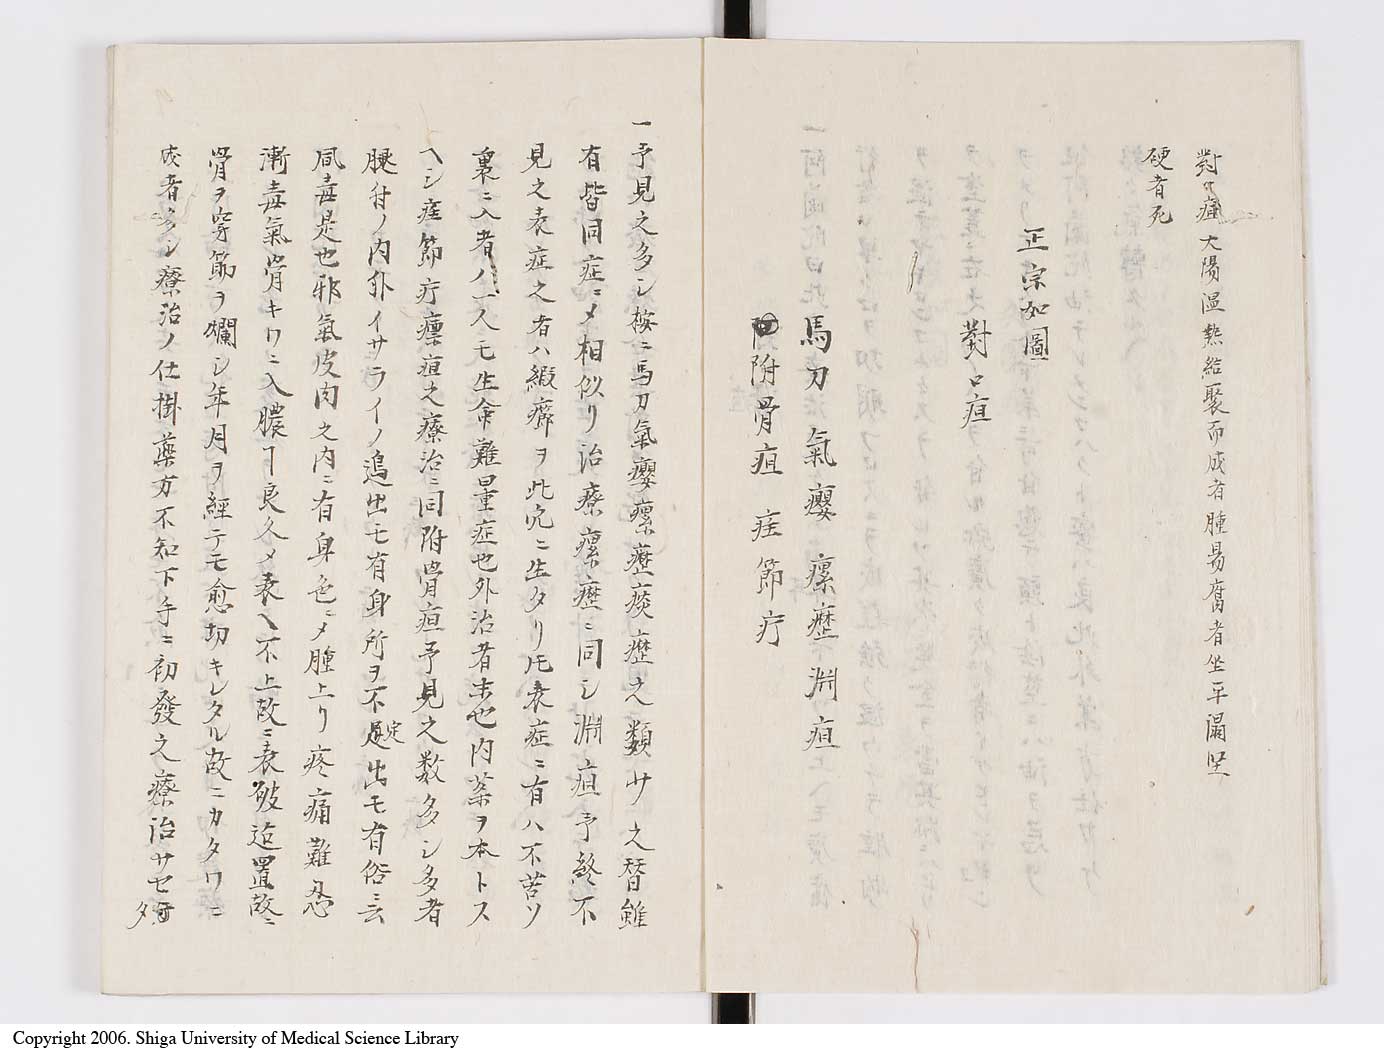 對口疽大陽温熱結聚而成者腫易腐者坐平漏堅
硬者死
正宗如圖
對口疽
馬刀氣癭 瘰癧 淵疽
附骨疽 疰節疔
一予見之多シ按ニ馬刀氣癭瘰癧痰癧之類サ之替雖
有皆同症ニメ相似リ治療瘰癧ニ同シ淵疽予終不
見之表症之者ハ緞癖ヲ此穴ニ生タリ圧表症ニ有ハ不苦ソ
裏ニ入者ハ一人モ生命難量症也外治者末也内薬ヲ本トス
ヘシ疰節疔瘭疽之療治ニ同附骨疽予見之数多シ多者
腿付ノ内外イサライノ邉出モ有身所ヲ不定出モ有俗ニ云
風毒是也邪氣皮肉之内ニ有身色ニメ腫上リ疼痛難忍
漸毒氣骨キワニ入膿下良久メ表ヘ不上故ニ表破迠置故ニ
骨ヲ穿節ヲ爛シ年月ヲ經テモ愈切キレタル故ニカタワニ
成者多シ療治ノ仕掛藥方不知下手ニ初發之療治サセ
タ
Copyright 2006. Shiga University of Medical Science Library